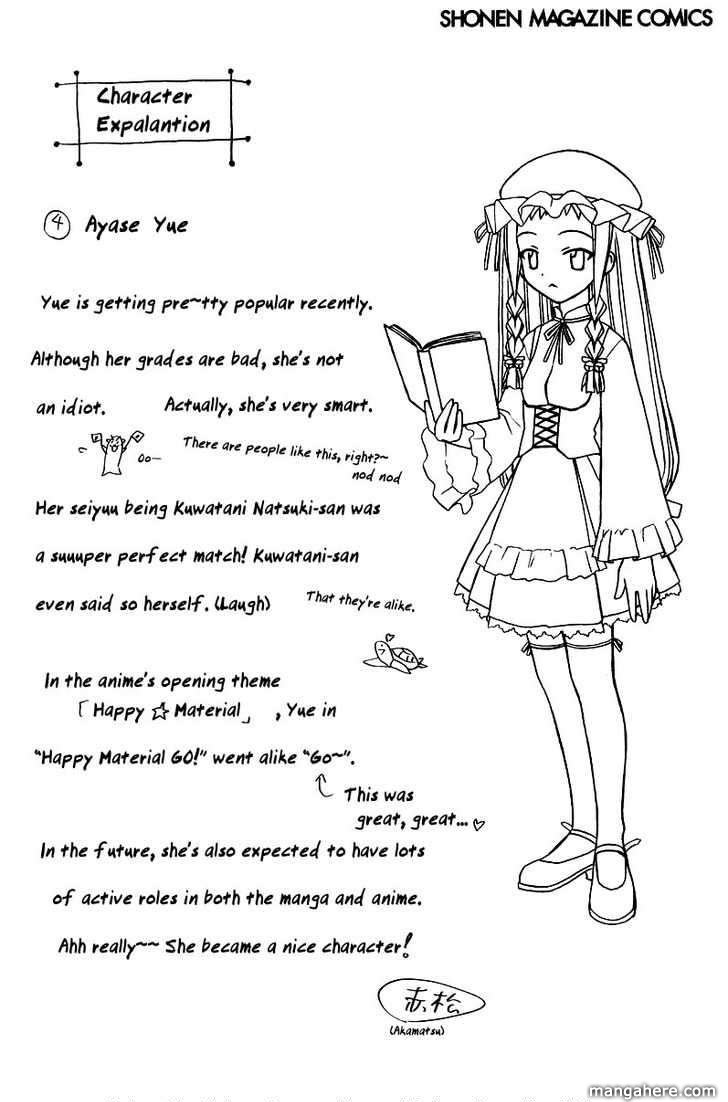 SHONEN MAGAZINE COMICS
Character
Expalantion
4 Ayase Yue
Yue is getting pre~tty popular recently.
Although her grades are bad, she's not
an idiot. Actually, she's very smart.
Oo— There are people like this, right?~
nod nod
Her seiyuu being Kuwatani Natsuki-san was
a suuuper perfect match! Kuwatani-san
even said so herself. (Laugh) That they're alike.
In the anime's opening theme
「Happy ☆ Material」 , Yue in
"Happy Material GO!" went alike "Go~".
This was
great, great... ♡
In the future, she's also expected to have lots
of active roles in both the manga and anime.
Ahh really~~ She became a nice character!
赤松
(Akamatsu)
mangahere.com